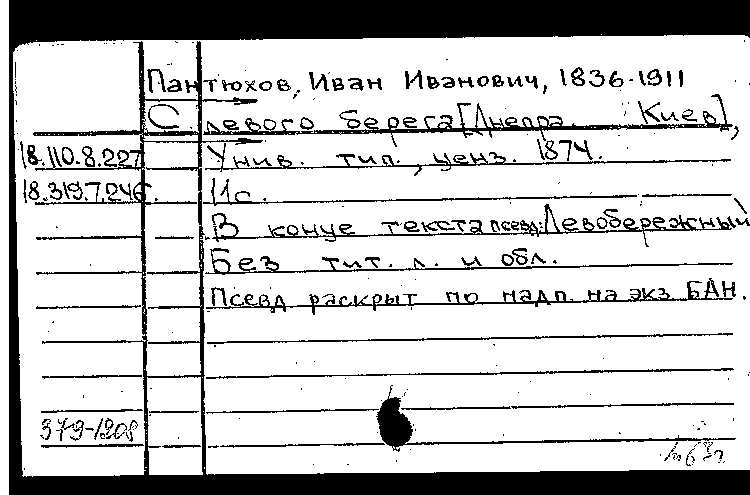 Пантюхов, Иван Иванович, 1836-1911
С левого берега [Днепра. Киев],
18.110.8.227 Унив. тип., ценз. 1874.
18.319.7.246. 11с.
В конце текста псевд: Левобережный
Без тит. л. и обл.
Псевд раскрыт по надп. на экз БАН.
379-1208